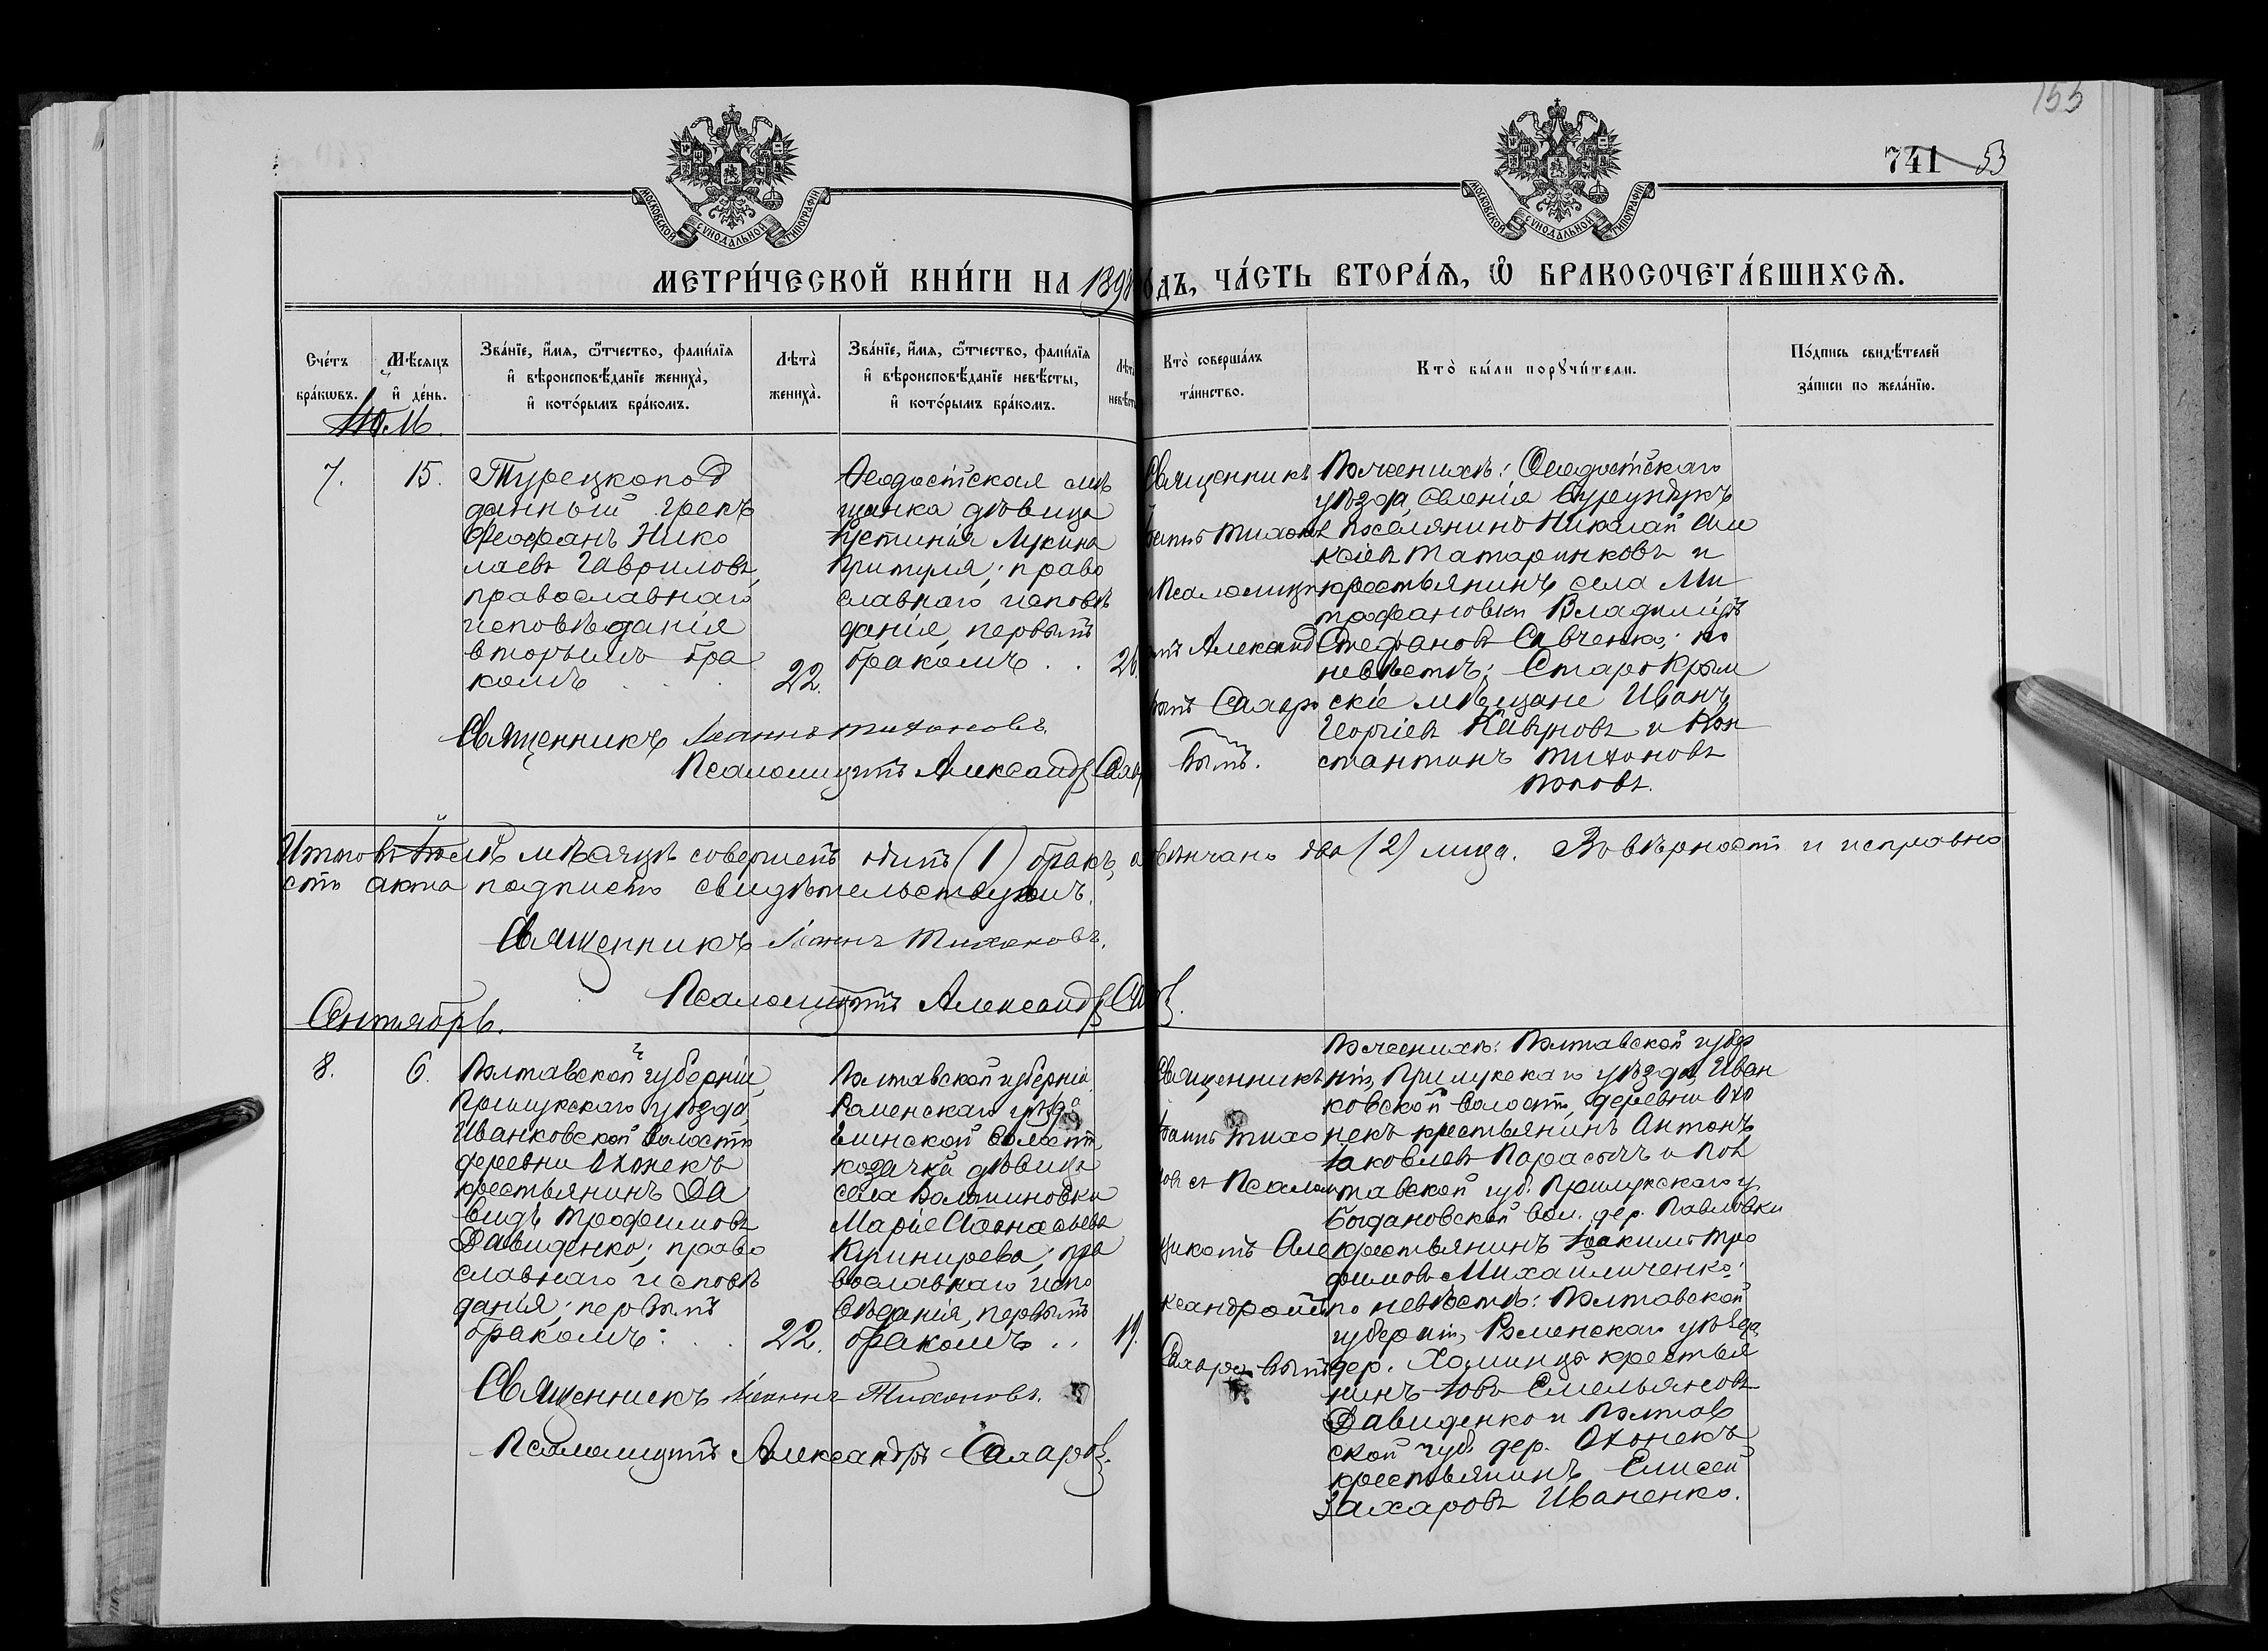 155
741 53
МОСКОВСКОЙ СѴНОДАЛЬНОЙ ТИПОГРАФІИ
МОСКОВСКОЙ СѴНОДАЛЬНОЙ ТИПОГРАФІИ
МЕТРИ́ЧЕСКОЙ КНИ́ГИ НА 189 ОДЪ, ЧА́СТЬ ВТОРА́Ѧ, Ѽ БРАКОСОЧЕТА́ВШИХСѦ.
Сче́тъ бра́кѡвъ.
Мѣ́сяцъ и҆ де́нь.
Зва́нїе, и҆́мя, ѻ҆́тчество, фами́лїя
и҆ вѣроисповѣ́данїе жениха̀,
и҆ кото́рымъ бра́комъ.
Лѣта̀ жениха̀.
Зва́нїе, и҆́мя, ѻ҆́тчество, фами́лїя
и҆ вѣроисповѣ́данїе невѣ́сты,
и҆ кото́рымъ бра́комъ.
Лѣта̀ невѣст
Кто̀ соверша́лъ та́инство.
Кто̀ бы́ли порꙋчи́тели.
По́дпись свидѣ́телей
за́писи по жела́нїю.
7.
15.
Турецкопод
данный грекъ
Феофанъ Нико
лаевъ Гавриловъ,
православнаго
исповѣданія
вторымъ бра
комъ . . .
22.
Ѳеодосійская мѣ
щанка дѣвица
Устинія Лукина
Притуля; право
славнаго исповѣ
данія, первымъ
бракомъ . .
26.
Священникъ
Тихонов
Псаломщи
Александ
Сахаро
вымъ.
По женихѣ: Ѳеодосійскаго
уѣзда, селенія
поселянинъ Николай Але
ксѣевъ Татаринковъ и
крестьянинъ села Ми
трофановки Владиміръ
Стефановъ Савченко; по
невѣстѣ: Старокрым
скіе мѣщане Иванъ
Георгіевъ и Кон
стантинъ Тихоновъ
Поповъ.
Священникъ Іоаннъ Тихоновъ.
Псаломщикъ Александръ Сахар
Итого въ мѣсяцѣ совершенъ одинъ (1) бракъ, повѣнчано два (2) лица. Въ вѣрности и исправно
сти акта подписью свидѣтельствуемъ.
Священникъ Іоаннъ Тихоновъ.
Псаломщикъ Александръ Сах
Сентябрь.
8.
6.
Полтавской губерніи,
Прилукскаго уѣзда,
Иванковской волости
деревни Охонекъ
крестьянинъ Да
видъ Трофимовъ
Давиденко; право
славнаго исповѣ
данія; первымъ
бракомъ: . .
22.
Полтавской губерніи,
Роменскаго уѣзда
волости,
козачка дѣвица
села Волошиновки
Марія Аѳанасьева
Кушнирева; пра
вославнаго испо
вѣданія, первымъ
бракомъ . .
19.
Священникъ
Іоаннъ Тихо
нов съ Псалом
щикомъ Але
ксандромъ
Сахаровымъ
По женихѣ: Полтавской губер
ніи, Прилукскаго уѣзда, Иван
ковской волости, деревни Охо
некъ крестьянинъ Антонъ
Яковлевъ Парасычъ и Пол
тавской губ. Прилукскаго у.
Богдановской вол. дер. Павловки
крестьянинъ Іоакимъ Тро
фимовъ Михайличенко;
по невѣстѣ: Полтавской
губерніи, Роменскаго уѣзда,
дер. Хоминцы крестья
нинъ Іовъ Емельяновъ
Давиденко и Полтав
ской губ. дер. Охонекъ
крестьянинъ Елисей
Захаровъ Иваненко.
Священникъ Іоаннъ Тихоновъ.
Псаломщикъ Александръ Сахаровъ.